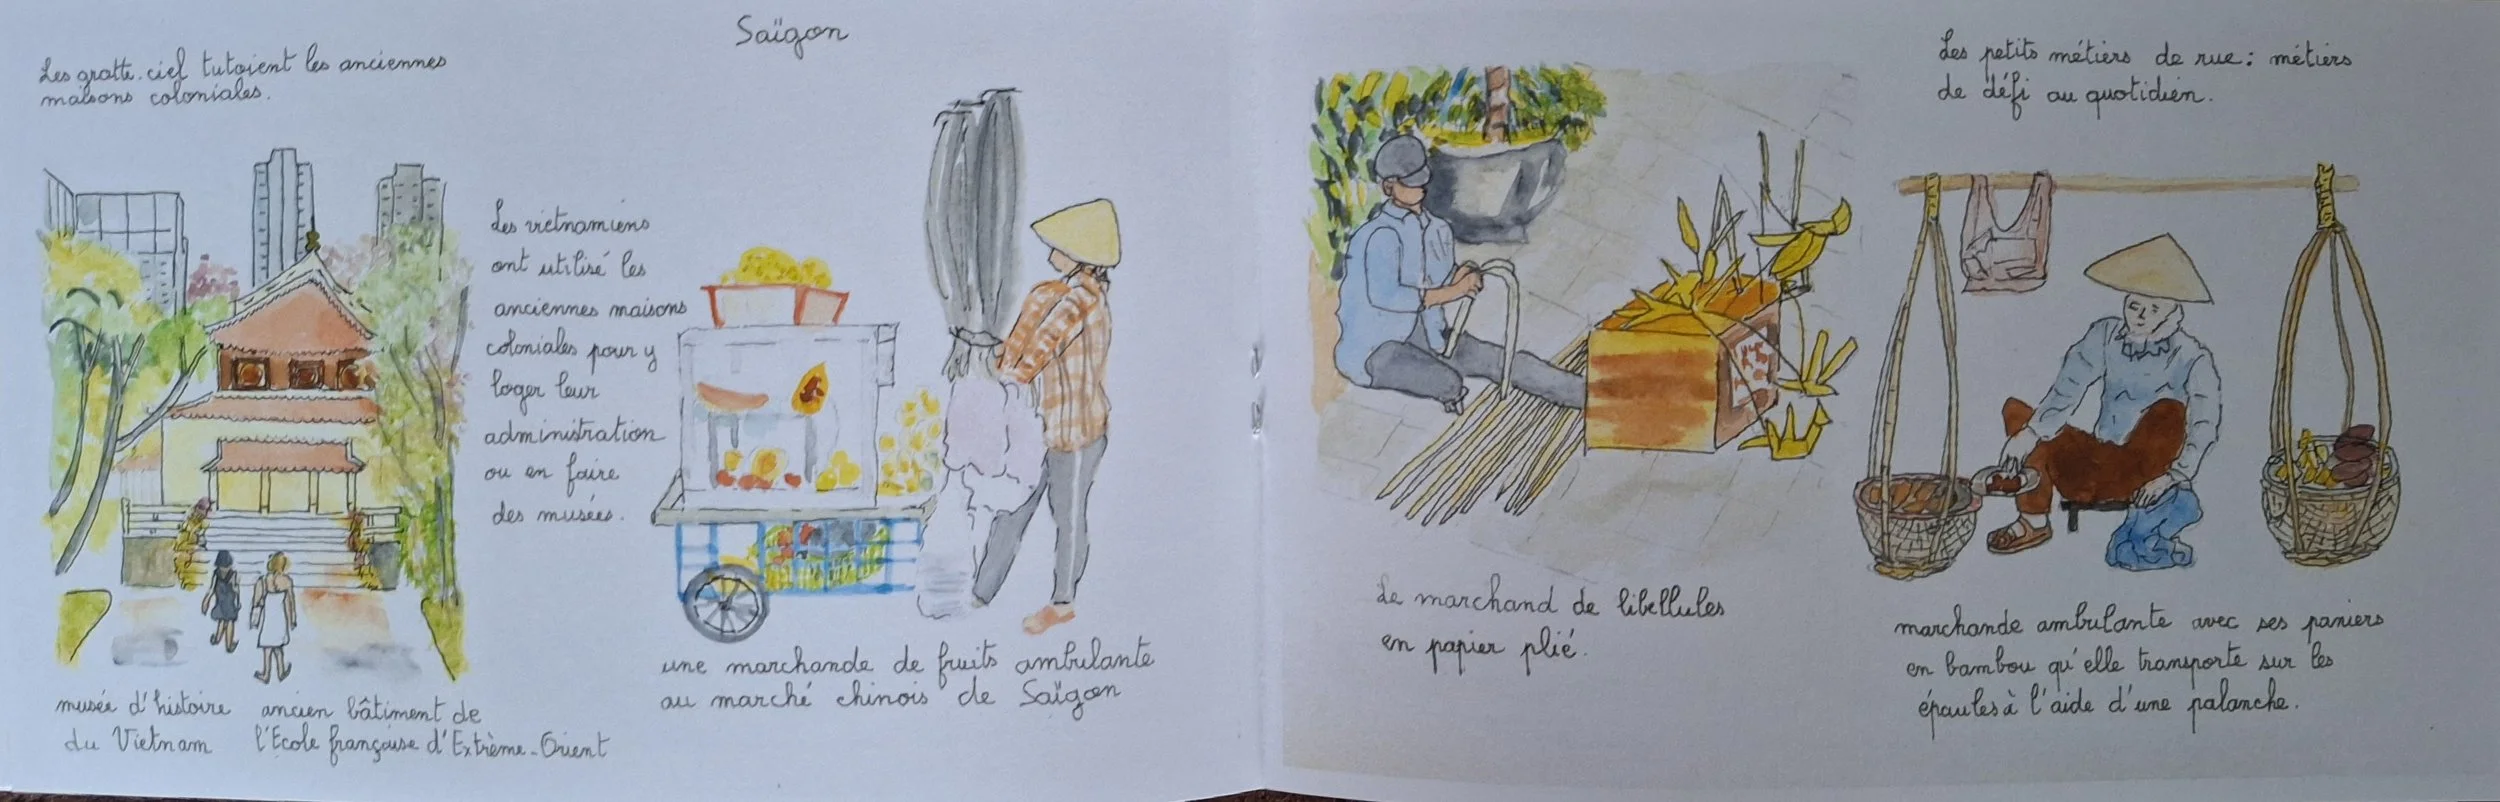 Saïgon
Les gratte-ciel tutoient les anciennes
maisons coloniales.
Les vietnamiens
ont utilisé les
anciennes maisons
coloniales pour y
loger leur
administration
ou en faire
des musées.
musée d'histoire
du Vietnam
ancien bâtiment de
l'Ecole française d'Extrème-Orient
une marchande de fruits ambulante
au marché chinois de Saïgon
Les petits métiers de rue : métiers
de défi au quotidien.
Le marchand de libellules
en papier plié.
marchande ambulante avec ses paniers
en bambou qu'elle transporte sur les
épaules à l'aide d'une palanche.